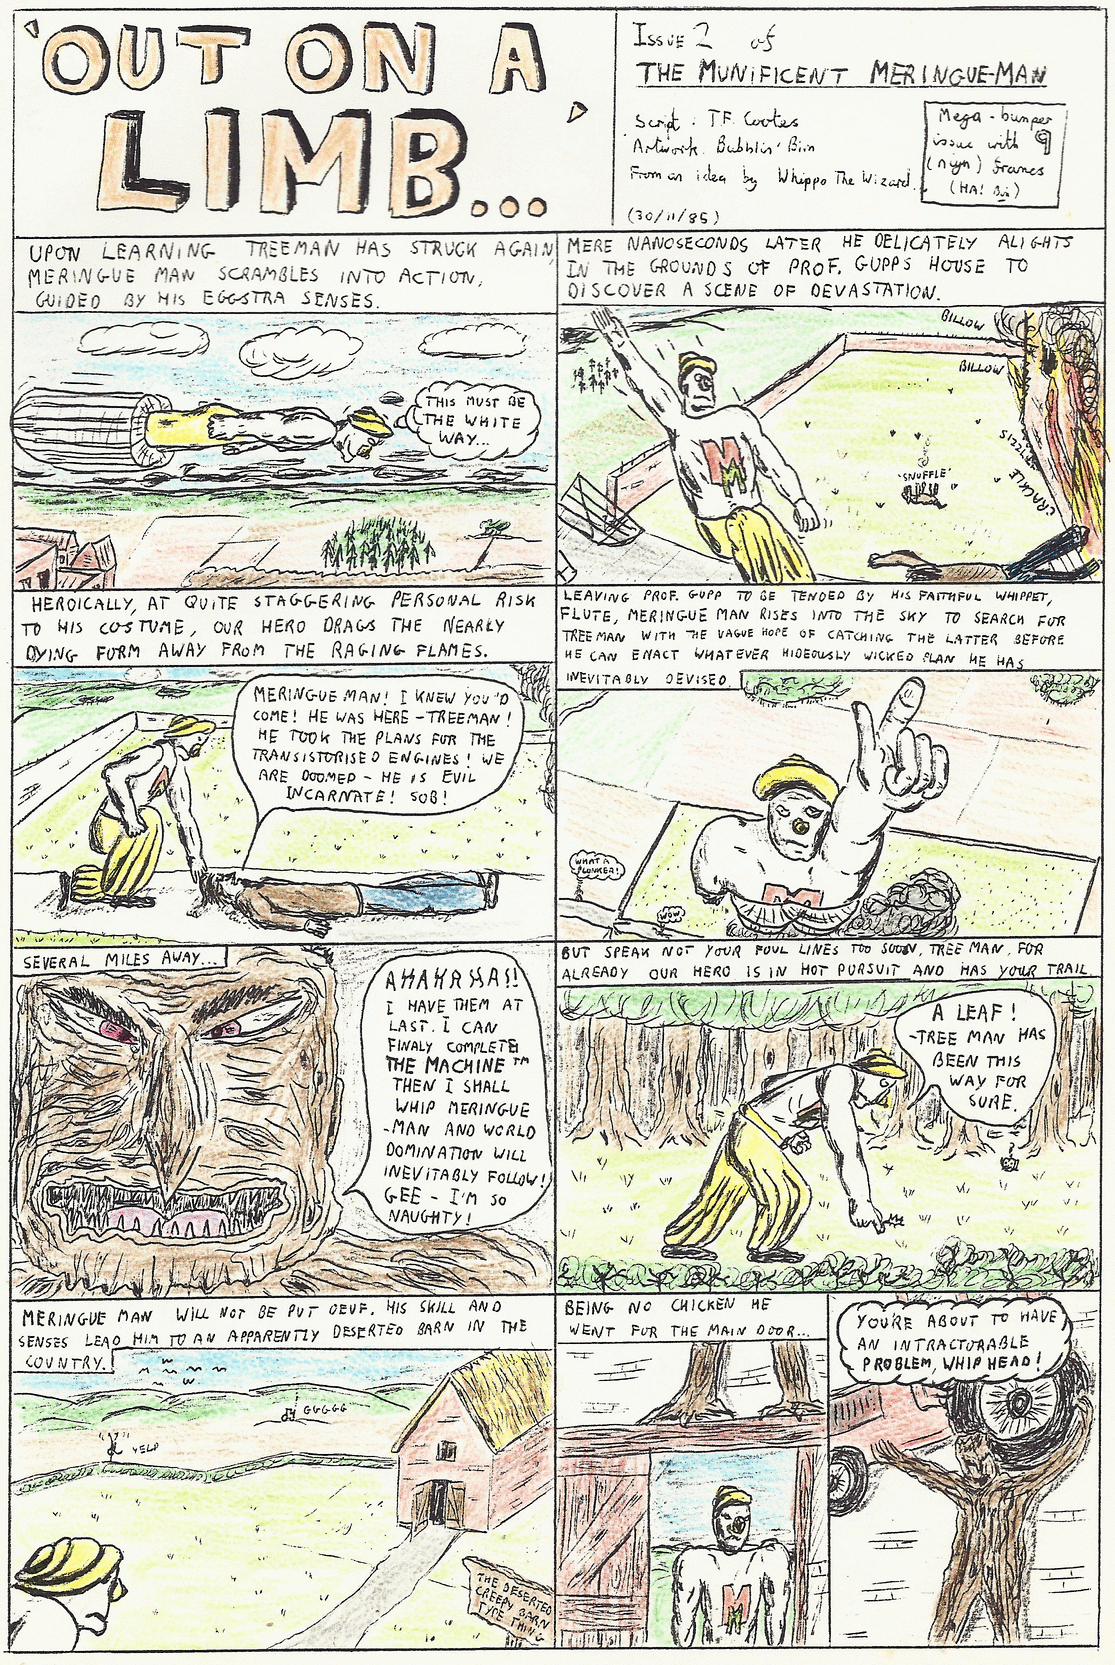 'OUT ON A
LIMB...'
ISSUE 2 of
THE MUNIFICENT MERINGUE-MAN
Script: T.F. Cootes
Artwork: Bubblin' Bim
From an idea by Whippo The Wizard.
(30/11/85)
Mega-bumper
issue with 9
(nyyn) frames
(HA! Bim)
UPON LEARNING TREEMAN HAS STRUCK AGAIN,
MERINGUE MAN SCRAMBLES INTO ACTION,
GUIDED BY HIS EGGSTRA SENSES.
THIS MUST BE
THE WHITE
WAY...
MERE NANOSECONDS LATER HE DELICATELY ALIGHTS
IN THE GROUNDS OF PROF. GUPPS HOUSE TO
DISCOVER A SCENE OF DEVASTATION.
BILLOW
BILLOW
SIZZLE
CRACKLE
'SNUFFLE'
HEROICALLY, AT QUITE STAGGERING PERSONAL RISK
TO HIS COSTUME, OUR HERO DRAGS THE NEARLY
DYING FORM AWAY FROM THE RAGING FLAMES.
MERINGUE MAN! I KNEW YOU'D
COME! HE WAS HERE - TREEMAN!
HE TOOK THE PLANS FOR THE
TRANSISTORISED ENGINES! WE
ARE DOOMED - HE IS EVIL
INCARNATE! SOB!
LEAVING PROF. GUPP TO BE TENDED BY HIS FAITHFUL WHIPPET,
FLUTE, MERINGUE MAN RISES INTO THE SKY TO SEARCH FOR
TREEMAN WITH THE VAGUE HOPE OF CATCHING THE LATTER BEFORE
HE CAN ENACT WHATEVER HIDEOUSLY WICKED PLAN HE HAS
INEVITABLY DEVISED.
WHAT A
PLONKER!
WOW
SEVERAL MILES AWAY...
AHAHAHA!!
I HAVE THEM AT
LAST. I CAN
FINALY COMPLETE
THE MACHINE™
THEN I SHALL
WHIP MERINGUE
-MAN AND WORLD
DOMINATION WILL
INEVITABLY FOLLOW!
GEE - I'M SO
NAUGHTY!
BUT SPEAK NOT YOUR FOUL LINES TOO SOON, TREE MAN, FOR
ALREADY OUR HERO IS IN HOT PURSUIT AND HAS YOUR TRAIL.
A LEAF!
-TREE MAN HAS
BEEN THIS
WAY FOR
SURE.
MERINGUE MAN WILL NOT BE PUT OEUF. HIS SKILL AND
SENSES LEAD HIM TO AN APPARENTLY DESERTED BARN IN THE
COUNTRY.
GGGGG
YELP
THE DESERTED
CREEPY BARN
TYPE THING
BEING NO CHICKEN HE
WENT FOR THE MAIN DOOR...
YOU'RE ABOUT TO HAVE
AN INTRACTORABLE
PROBLEM, WHIP HEAD!